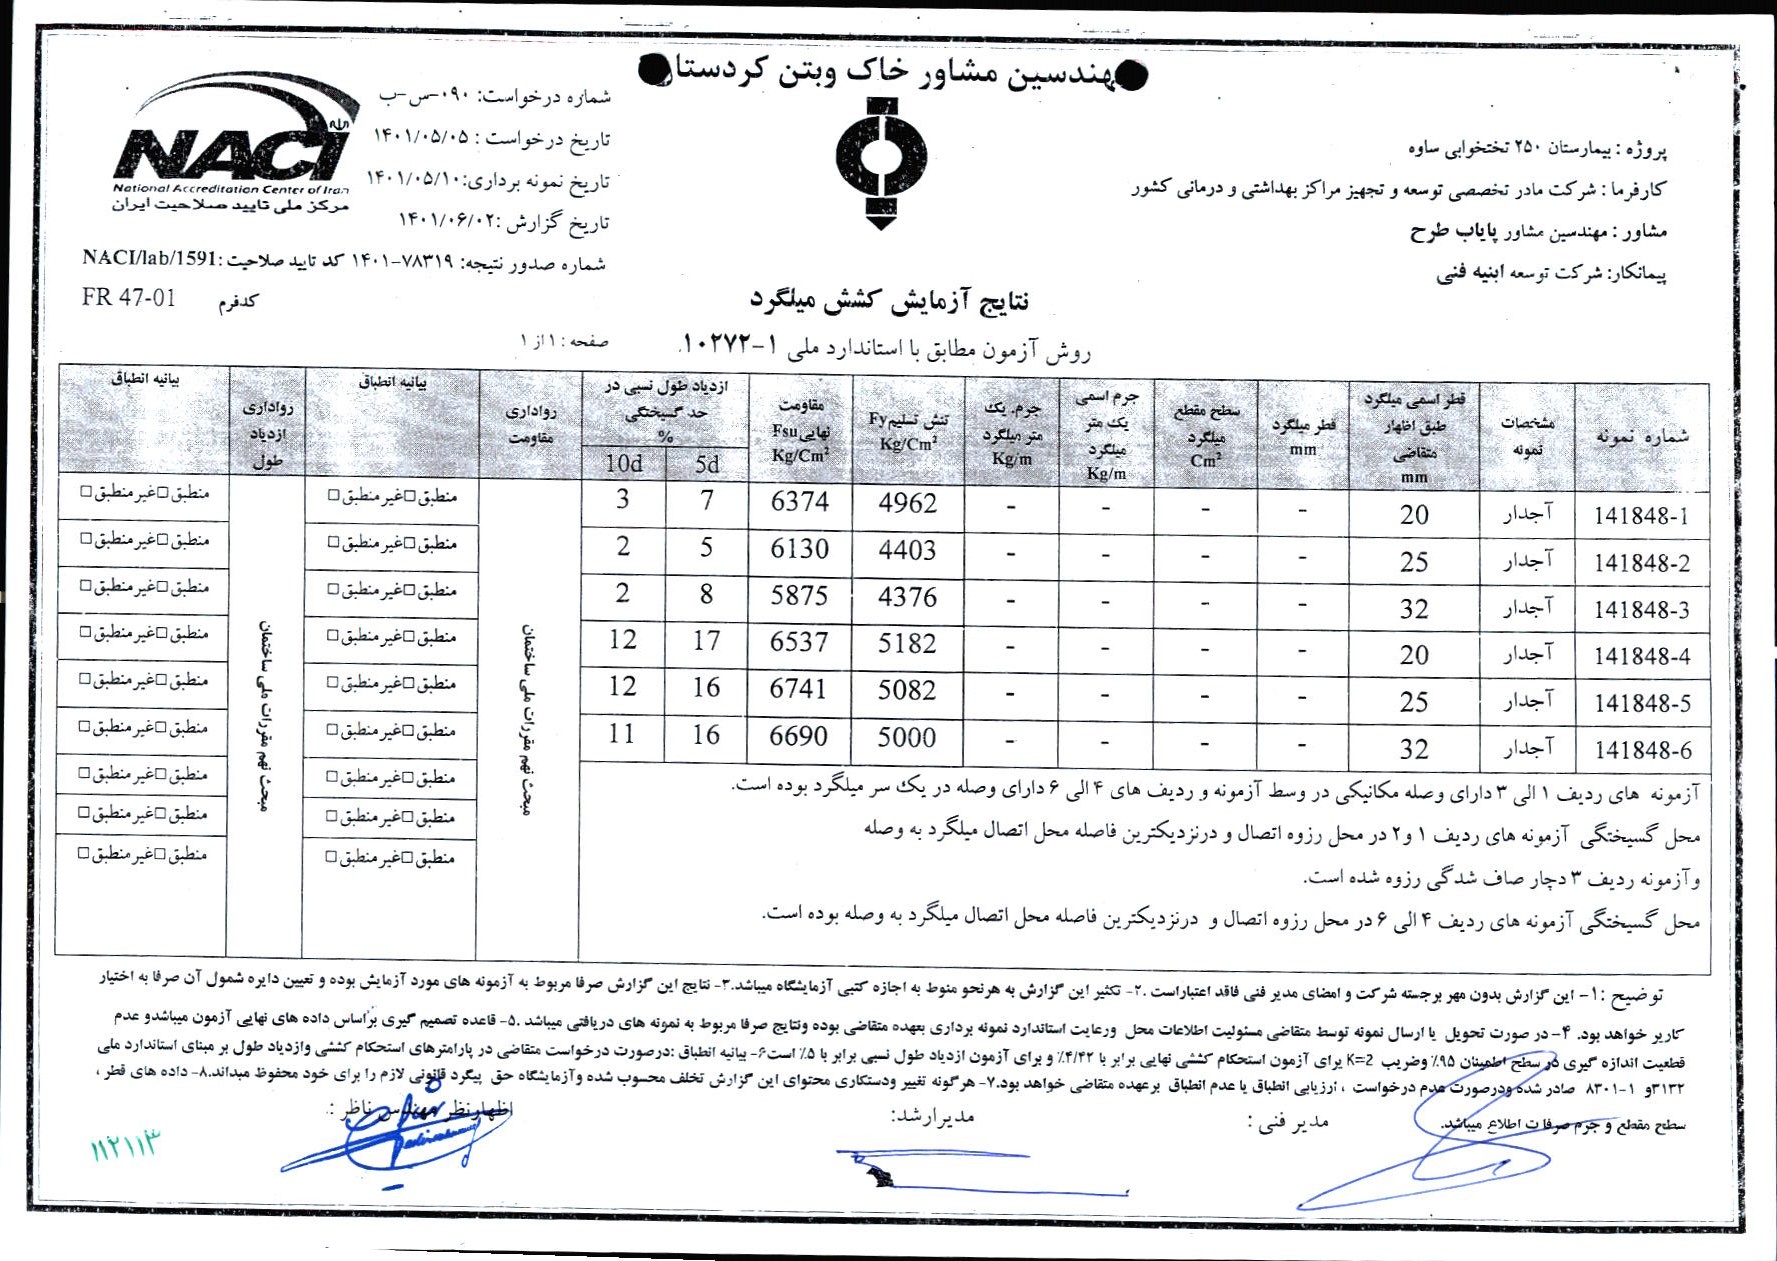 مهندسین مشاور خاک وبتن کردستان
پروژه : بیمارستان ۲۵۰ تختخوابی ساوه
کارفرما : شرکت مادر تخصصی توسعه و تجهیز مراکز بهداشتی و درمانی کشور
مشاور : مهندسین مشاور پایاب طرح
پیمانکار: شرکت توسعه ابنیه فنی
شماره درخواست: ۰۹۰-س-ب
تاریخ درخواست : ۱۴۰۱/۰۵/۰۵
تاریخ نمونه برداری:۱۴۰۱/۰۵/۱۰
تاریخ گزارش :۱۴۰۱/۰۶/۰۲
شماره صدور نتیجه: ۷۸۳۱۹-۱۴۰۱ کد تایید صلاحیت :NACI/lab/1591
کدفرم FR 47-01
NACI
National Accreditation Center of Iran
مرکز ملی تایید صلاحیت ایران
نتایج آزمایش کشش میلگرد
روش آزمون مطابق با استاندارد ملی ۱-۱۰۲۷۲.
صفحه : ۱ از ۱
شماره نمونه | مشخصات نمونه | قطر اسمی میلگرد طبق اظهار متقاضی mm | قطر میلگرد mm | سطح مقطع میلگرد Cm² | جرم اسمی یک متر میلگرد Kg/m | جرم یک متر میلگرد Kg/m | تنش تسلیم Fy Kg/Cm² | مقاومت نهایی Fsu Kg/Cm² | ازدیاد طول نسبی در حد گسیختگی % 5d | 10d | رواداری مقاومت | بیانیه انطباق | رواداری ازدیاد طول | بیانیه انطباق
141848-1 آجدار 20 - - - - 4962 6374 7 3 منطبق□غیرمنطبق□ منطبق□غیرمنطبق□
141848-2 آجدار 25 - - - - 4403 6130 5 2 منطبق□غیرمنطبق□ منطبق□غیرمنطبق□
141848-3 آجدار 32 - - - - 4376 5875 8 2 منطبق□غیرمنطبق□ منطبق□غیرمنطبق□
141848-4 آجدار 20 - - - - 5182 6537 17 12 منطبق□غیرمنطبق□ منطبق□غیرمنطبق□
141848-5 آجدار 25 - - - - 5082 6741 16 12 منطبق□غیرمنطبق□ منطبق□غیرمنطبق□
141848-6 آجدار 32 - - - - 5000 6690 16 11 منطبق□غیرمنطبق□ منطبق□غیرمنطبق□
منطبق□غیرمنطبق□ منطبق□غیرمنطبق□
منطبق□غیرمنطبق□ منطبق□غیرمنطبق□
منطبق□غیرمنطبق□ منطبق□غیرمنطبق□
مبحث نهم مقررات ملی ساختمان
مبحث نهم مقررات ملی ساختمان
آزمونه های ردیف ۱ الی ۳ دارای وصله مکانیکی در وسط آزمونه و ردیف های ۴ الی ۶ دارای وصله در یک سر میلگرد بوده است.
محل گسیختگی آزمونه های ردیف ۱ و۲ در محل رزوه اتصال و درنزدیکترین فاصله محل اتصال میلگرد به وصله
و آزمونه ردیف ۳ دچار صاف شدگی رزوه شده است.
محل گسیختگی آزمونه های ردیف ۴ الی ۶ در محل رزوه اتصال و درنزدیکترین فاصله محل اتصال میلگرد به وصله بوده است.
توضیح :۱- این گزارش بدون مهر برجسته شرکت و امضای مدیر فنی فاقد اعتباراست .۲- تکثیر این گزارش به هرنحو منوط به اجازه کتبی آزمایشگاه میباشد.۳- نتایج این گزارش صرفا مربوط به آزمونه های مورد آزمایش بوده و تعیین دایره شمول آن صرفا به اختیار
کاربر خواهد بود. ۴- در صورت تحویل یا ارسال نمونه توسط متقاضی مسئولیت اطلاعات محل ورعایت استاندارد نمونه برداری بعهده متقاضی بوده ونتایج صرفا مربوط به نمونه های دریافتی میباشد .۵- قاعده تصمیم گیری براساس داده های نهایی آزمون میباشدو عدم
قطعیت اندازه گیری در سطح اطمینان ۹۵٪ وضریب K=2 برای آزمون استحکام کششی نهایی برابر با ۴/۴۲٪ و برای آزمون ازدیاد طول نسبی برابر با ۵٪ است۶- بیانیه انطباق :درصورت درخواست متقاضی در پارامترهای استحکام کششی وازدیاد طول بر مبنای استاندارد ملی
۳۱۳۲و ۱-۸۳۰۱ صادر شده ودرصورت عدم درخواست ، ارزیابی انطباق یا عدم انطباق برعهده متقاضی خواهد بود.۷- هرگونه تغییر ودستکاری محتوای این گزارش تخلف محسوب شده وآزمایشگاه حق پیگرد قانونی لازم را برای خود محفوظ میداند.۸- داده های قطر ،
سطح مقطع و جرم صرفا ت اطلاع میباشد.
مدیر فنی :
مدیرارشد:
اظهارنظر مهندس ناظر :
۱۱۲۱۱۳